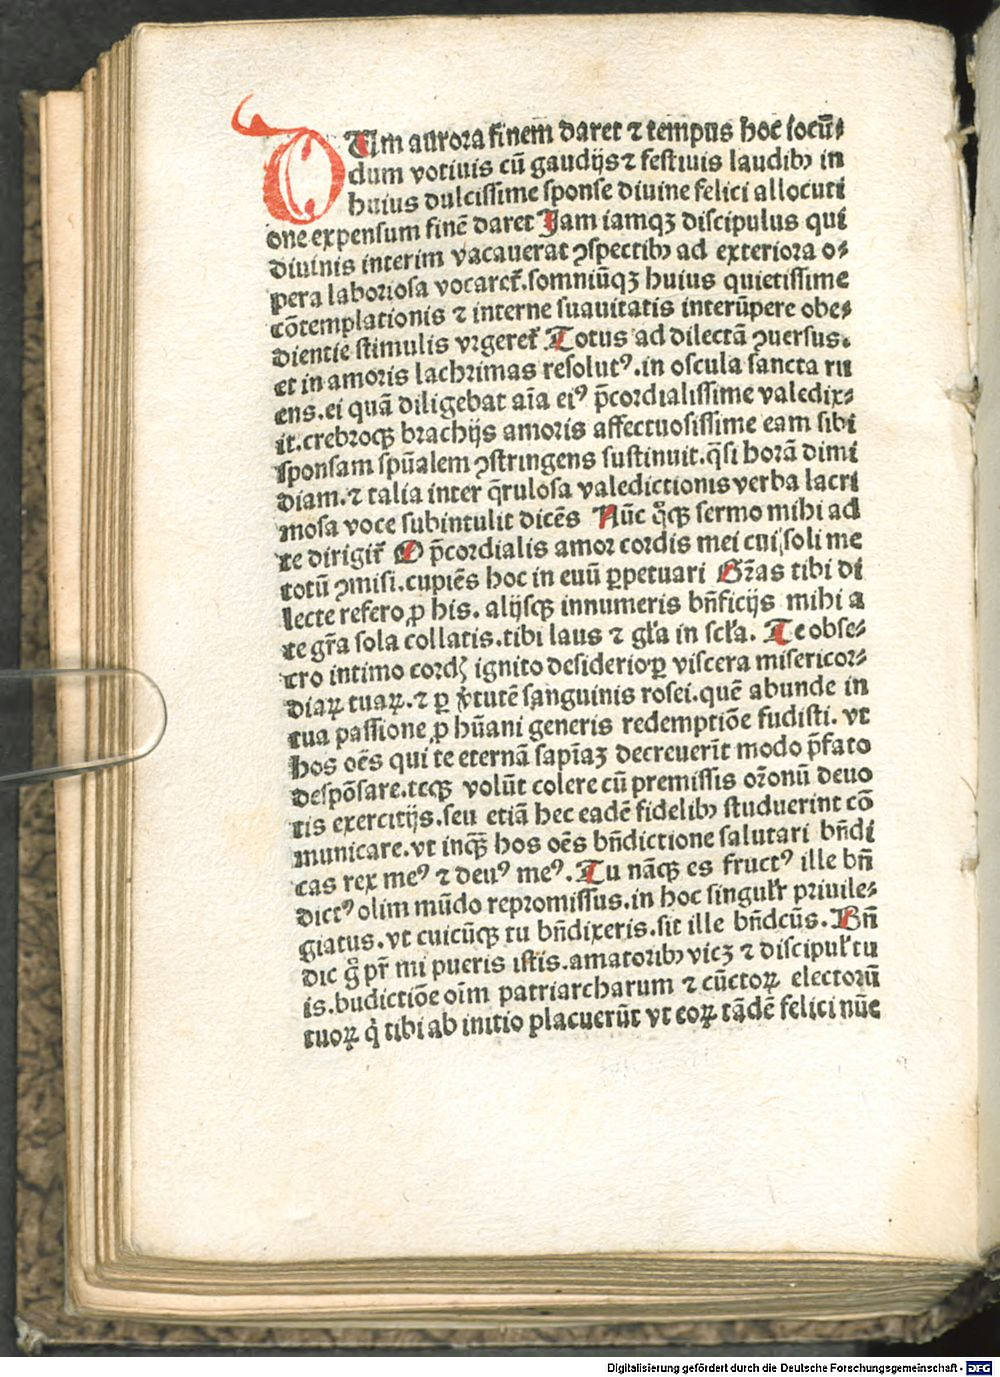 DUm aurora finem daret ⁊ tempus hoc iocū⸗
dum votiuis cū gaudijs ⁊ festiuis laudibꝫ in
huius dulcissime sponse diuine felici allocuti
one expensum finē daret Jam iamqꝫ discipulus qui
diuinis interim vacauerat ꝯspectibꝫ ad exteriora o⸗
pera laboriosa vocaret̄. somniūqꝫ huius quietissime
cōtemplationis ⁊ interne suauitatis interūpere obe⸗
dientie stimulis vrgeret̄ Totus ad dilectā ꝯuersus.
et in amoris lachrimas resolutꝰ. in oscula sancta ru
ens. ei quā diligebat aīa eiꝰ p̄cordialissime valedix⸗
it. crebrocꝫ brachijs amoris affectuosissime eam sibi
sponsam spūalem ꝯstringens sustinuit. q̄si horā dimi
diam. ⁊ talia inter q̄rulosa valedictionis verba lacri
mosa voce subintulit dicēs Nūc q̊cꝫ sermo mihi ad
te dirigit̄ O p̄cordialis amor cordis mei cui soli me
totū ꝯmisi. cupiēs hoc in euū ꝑpetuari Gr̄as tibi di
lecte refero ꝓ his. alijscꝫ innumeris bn̄ficijs mihi a
te gr̄a sola collatis. tibi laus ⁊ gl̄a in scl̄a. Te obse⸗
cro intimo cordꝭ ignito desiderio ꝑ viscera misericor⸗
diaꝝ tuaꝝ. ⁊ ꝑ v̄tutē sanguinis rosei. quē abunde in
tua passione ꝓ hūani generis redemptiōe fudisti. vt
hos oēs qui te eternā sapīaꝫ decreuerīt modo p̄fato
despōsare. tecꝫ volūt colere cū premissis or̄onū deuo
tis exercitijs. seu etiā hec eadē fidelibꝫ studuerint cō
municare. vt inq̄ꝫ hos oēs bn̄dictione salutari bn̄di
cas rex meꝰ ⁊ deuꝰ meꝰ. Tu nācꝫ es fructꝰ ille bn̄
dictꝰ olim mūdo repromissus. in hoc singulr̄ priuile⸗
giatus. vt cuicūcꝫ tu bn̄dixeris. sit ille bn̄dcūs. Bn̄
dic g̊ pr̄ mi pueris istis. amatoribꝫ vicꝫ ⁊ discipul̄ tu
is. budictiōe oīm patriarcharum ⁊ cūctoꝝ electorū
tuoꝝ q̇ tibi ab initio placuerūt vt eoꝝ tādē felici nūe
Digitalisierung gefördert durch die Deutsche Forschungsgemeinschaft - DFG